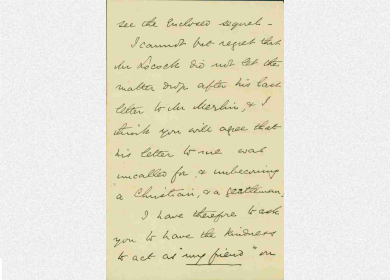 see the enclosed sequel -
I cannot but regret that
Mr Locock did not let the
matter drop after his last
letter to Mr Merlin, & I
think you will agree that
his letter to me was
uncalled for & unbecoming
a Christian, & a gentleman.
I have therefore to ask
you to have the kindness
to act as "my friend" on